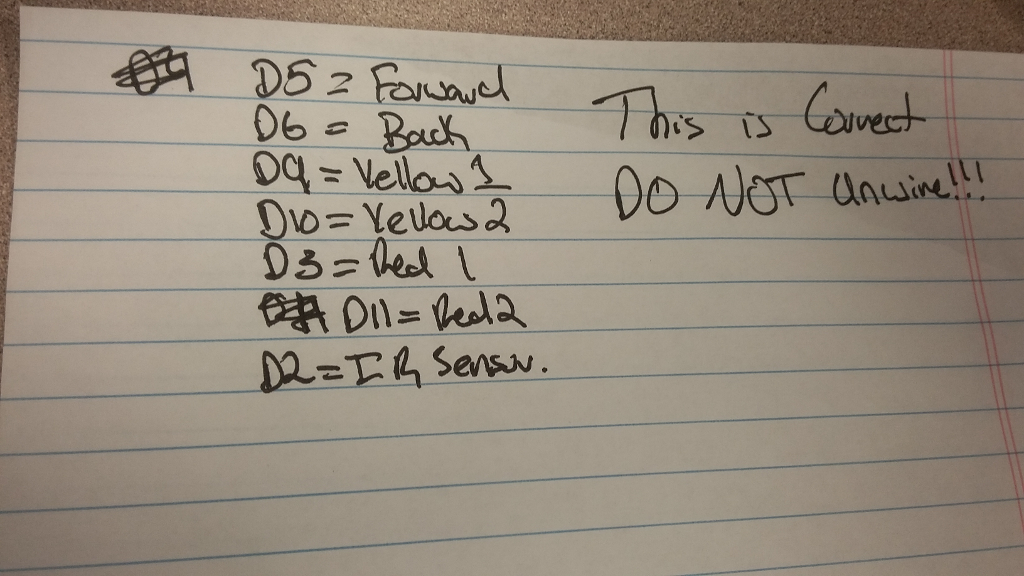 D5 = Forward
D6 = Back
D9 = Yellow 1
D10 = Yellow 2
D3 = Red 1
D11 = Red 2
D2 = IR Sensor.
This is Correct
DO NOT Unwire!!!